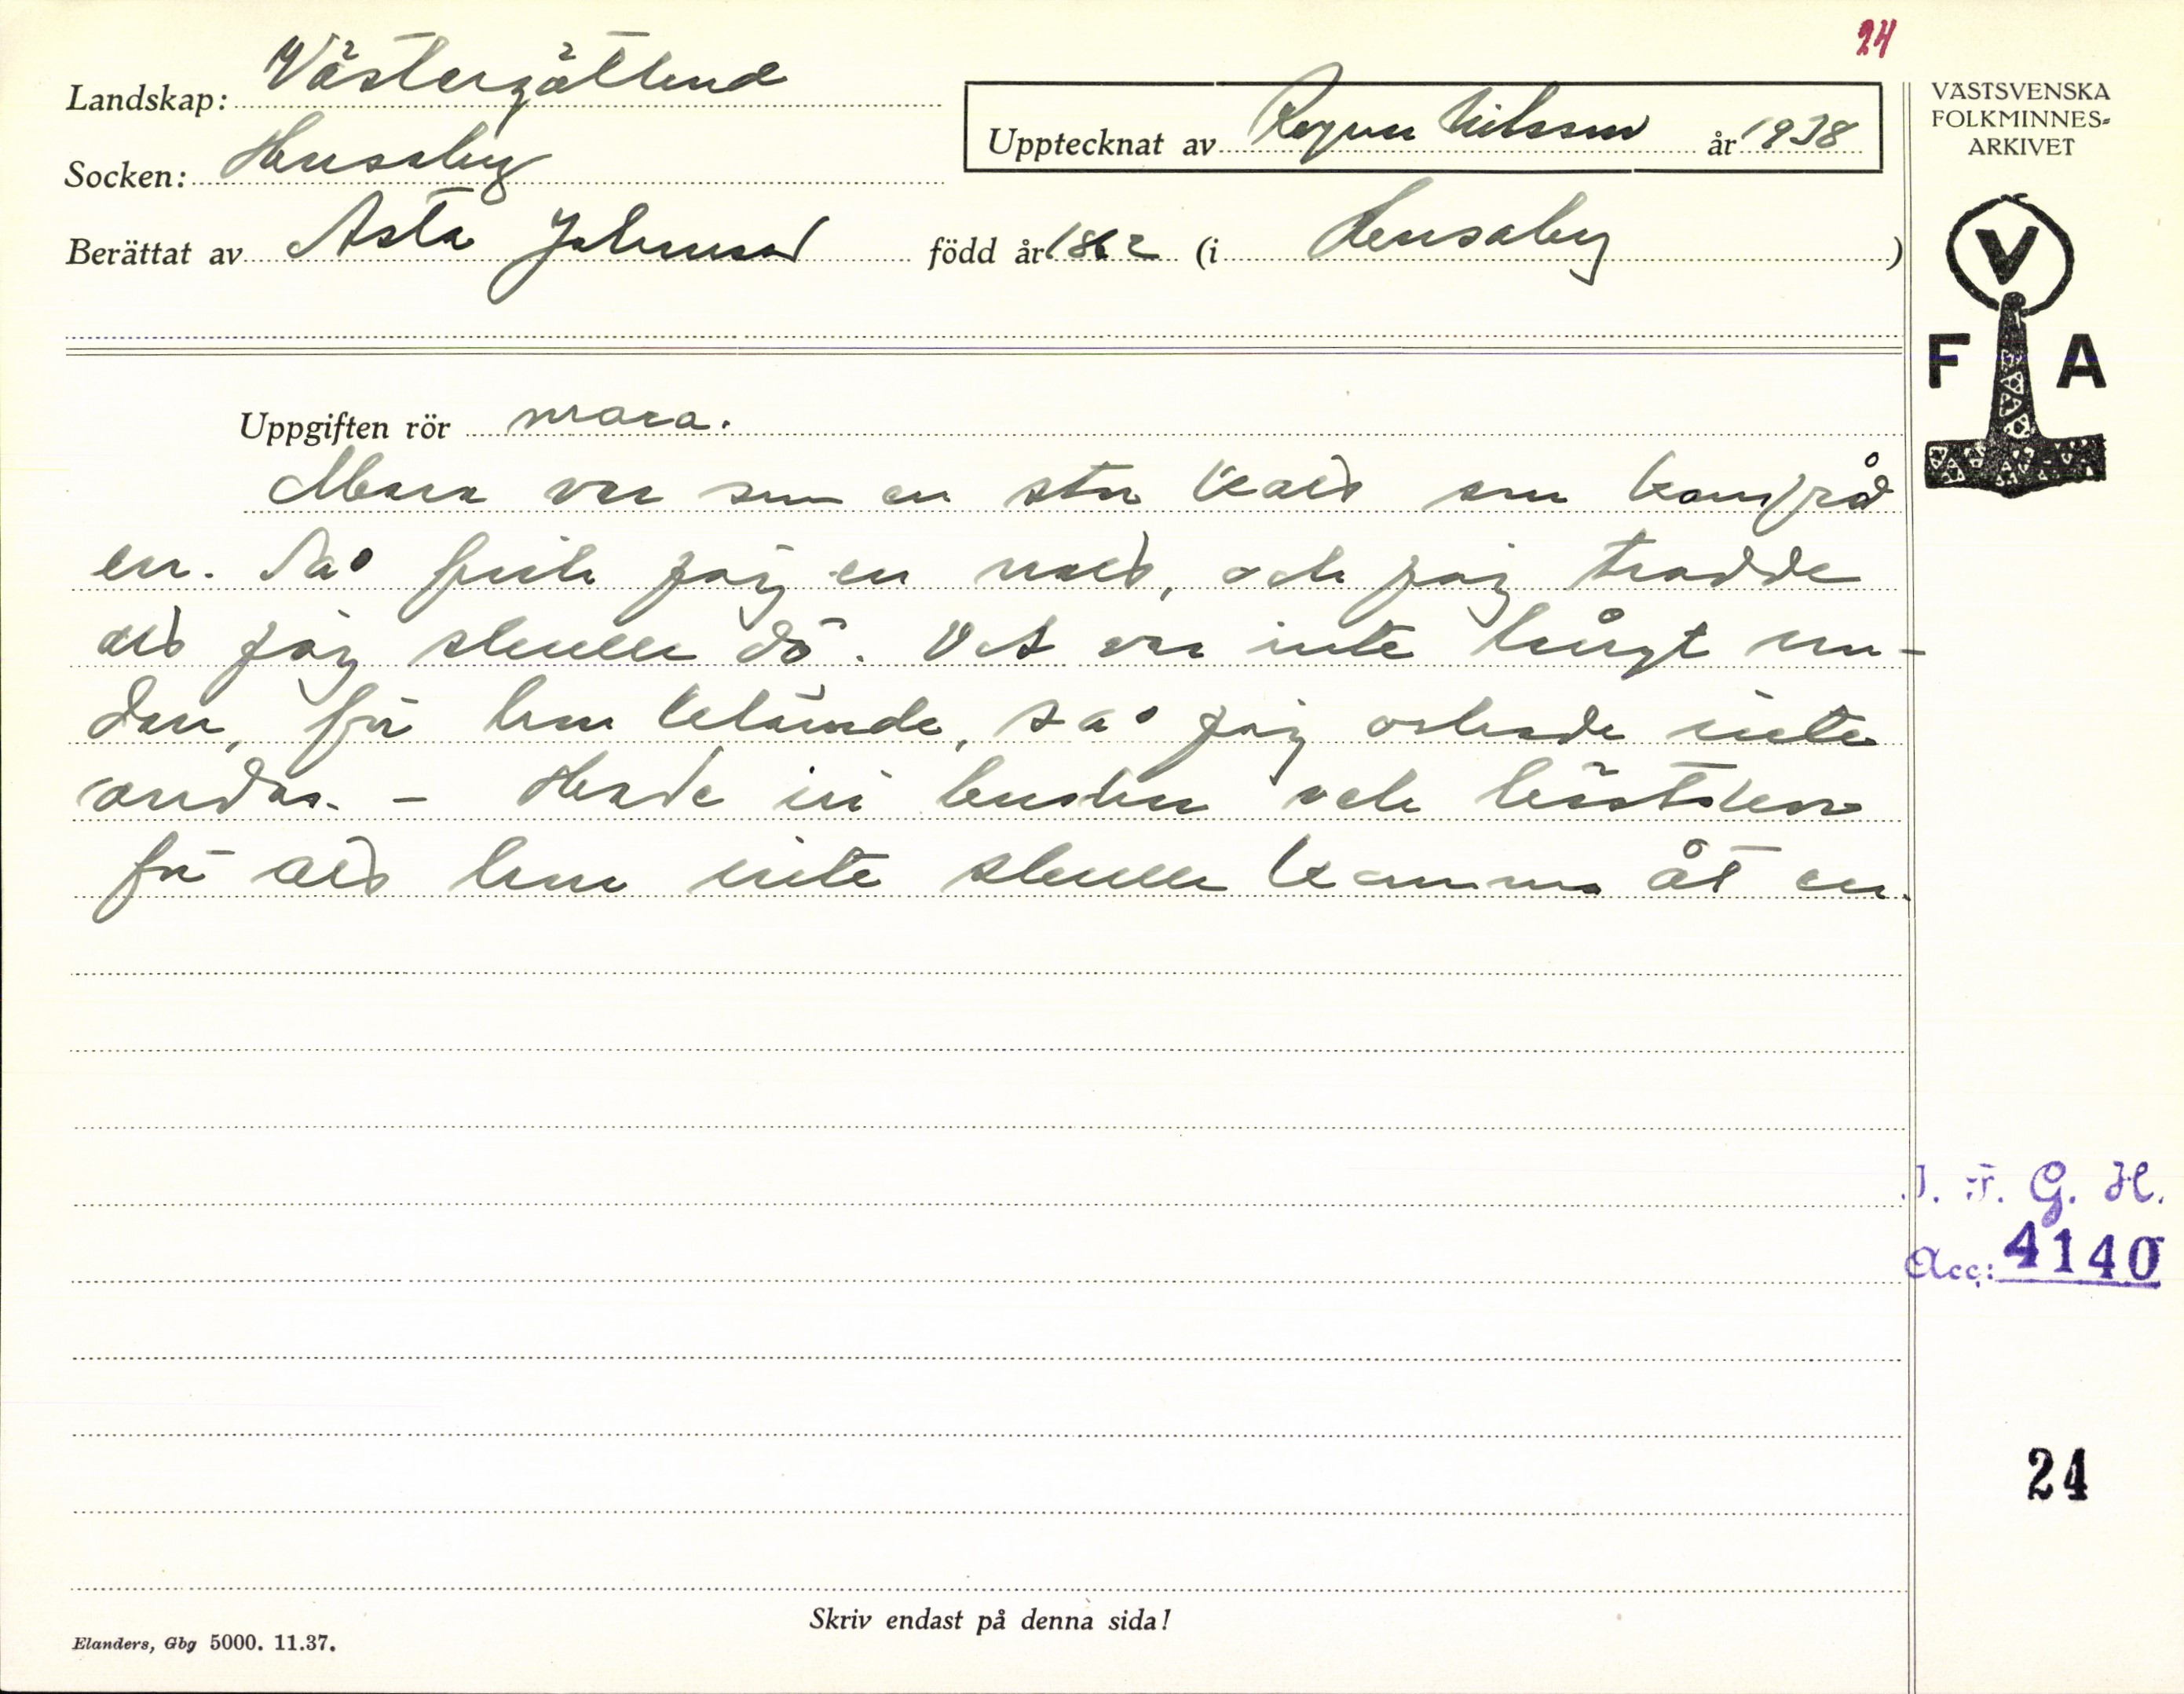 24
Landskap: Västergötland
Upptecknat av Ragnar Nilsson år 1938
Socken: Husaby
Berättat av Asta Johansson född år 1862 (i Husaby)
VÄSTSVENSKA
FOLKMINNES-
ARKIVET
V
F A
Uppgiften rör mara.
Mara var som en stor katt som kom på
en. Så fick jag en natt, och jag trodde
att jag skulle dö. Det var inte långt un-
dan, för hon klämde, så jag orkade inte
andas. – Hade in kudden och
för att hon inte skulle komma åt en.
J. F. G. H.
Acc: 4140
24
Skriv endast på denna sida!
Elanders, Gbg 5000. 11.37.